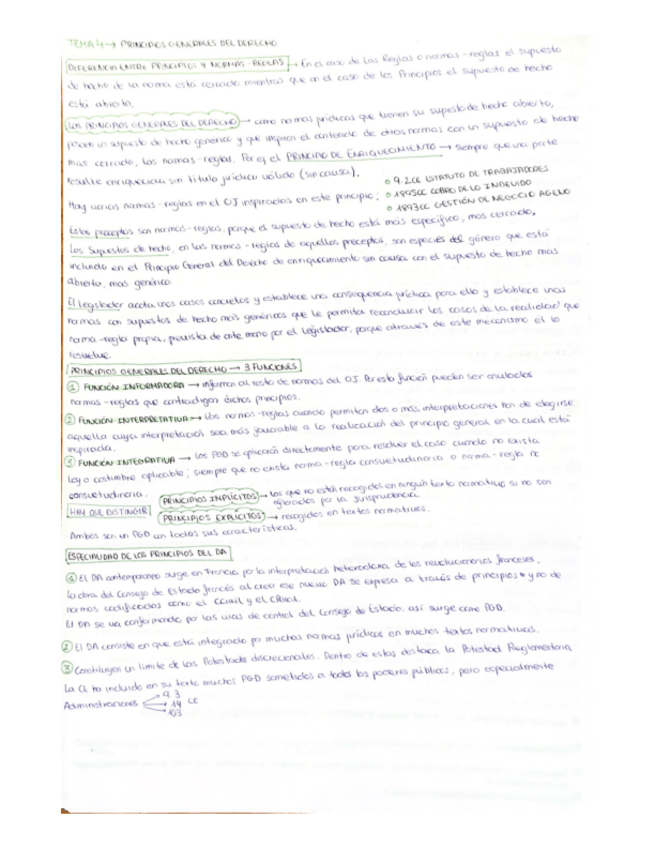 TEMA 4 → PRINCIPIOS GENERALES DEL DERECHO
DIFERENCIA ENTRE PRINCIPIOS Y NORMAS-REGLAS → En el caso de las Reglas o normas-reglas el supuesto
de hecho de la norma está cerrado mientras que en el caso de los Principios el supuesto de hecho
está abierto.
LOS PRINCIPIOS GENERALES DEL DERECHO → como normas jurídicas que tienen su supuesto de hecho abierto,
poseen un supuesto de hecho genérico y que inspiran el contenido de otras normas con un supuesto de hecho
mas cerrado, las normas-reglas. Por ej el PRINCIPIO DE ENRIQUECIMIENTO → siempre que una parte
resulte enriquecida sin título jurídico válido (sin causa).
Hay varias normas-reglas en el OJ inspiradas en este principio; o 9.2CC ESTATUTO DE TRABAJADORES
o 1895CC COBRO DE LO INDEVIDO
o 1893CC GESTIÓN DE NEGOCIO AGENO
Estos preceptos son normas-reglas, porque el supuesto de hecho está más específico, mas cerrado.
Los supuestos de hecho, en las normas-reglas de aquellos preceptos, son especies del género que está
incluido en el Principio General del Derecho de enriquecimiento sin causa con el supuesto de hecho mas
abierto, mas genérico.
El legislador acota unos casos concretos y establece una consecuencia jurídica para ello y establece unas
normas con supuestos de hecho más genéricos que le permita reconducir los casos de la realidad que
norma-regla propia, prevista de ante mano por el legislador, porque através de este mecanismo él lo
resuelve.
PRINCIPIOS GENERALES DEL DERECHO → 3 FUNCIONES
1 FUNCIÓN INFORMADORA → informan al resto de normas del OJ. Por esta función pueden ser anuladas
normas-reglas que contradigan dichos principios.
2 FUNCIÓN INTERPRETATIVA → Las normas-reglas cuando permitan dos o más interpretaciones han de elegirse
aquella cuya interpretación sea más favorable a la realización del principio general en la cual está
inspirada.
3 FUNCIÓN INTEGRATIVA → Los PGD se aplicarán directamente para resolver el caso cuando no exista
ley o costumbre aplicable; siempre que no exista norma-regla consuetudinaria o norma-regla no
consuetudinaria.
HAY QUE DISTINGUIR
PRINCIPIOS IMPLÍCITOS → los que no están recogidos en ningún texto normativo si no son
por la Jurisprudencia
PRINCIPIOS EXPLÍCITOS → recogidos en textos normativos.
Ambos son un PGD con todas sus características.
ESPECIALIDAD DE LOS PRINCIPIOS DEL DA
1 El DA contemporaneo surge en Francia por la interpretación heterodoxa de los revolucionarios franceses.
La obra del Consejo de Estado francés al crear ese nuevo DA se expresa a través de principios y no de
normas codificadas como el CCivil y el CPenal.
El DA se va conformando por las vías de control del Consejo de Estado, así surge como PGD.
2 El DA consiste en que está integrado por muchas normas jurídicas en muchos textos normativos.
3 Constituyen un límite de las Potestades discrecionales. Dentro de estas destaca la Potestad Reglamentaria
La CE ha incluido en su texto muchos PGD sometidos a todos los poderes públicos, pero especialmente
Administraciones
9.3
14 CE
103